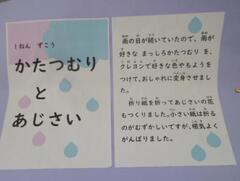 1ねん ずこう
かたつむり
と
あじさい
雨の日が続いていたので、雨が
好きな まっしろかたつむり を、
クレヨンで好きな色やもようを
つけて、おしゃれに変身させまし
た。
折り紙を折ってあじさいの花
もつくりました。小さい紙は折る
のがむずかしいですが、根気よく
がんばりました。